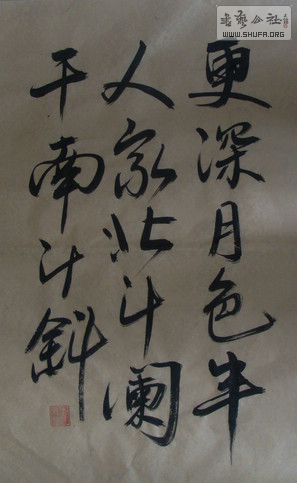 書藝公社
WWW.SHUFA.ORG
更深月色半
人家北斗闌
干南斗斜